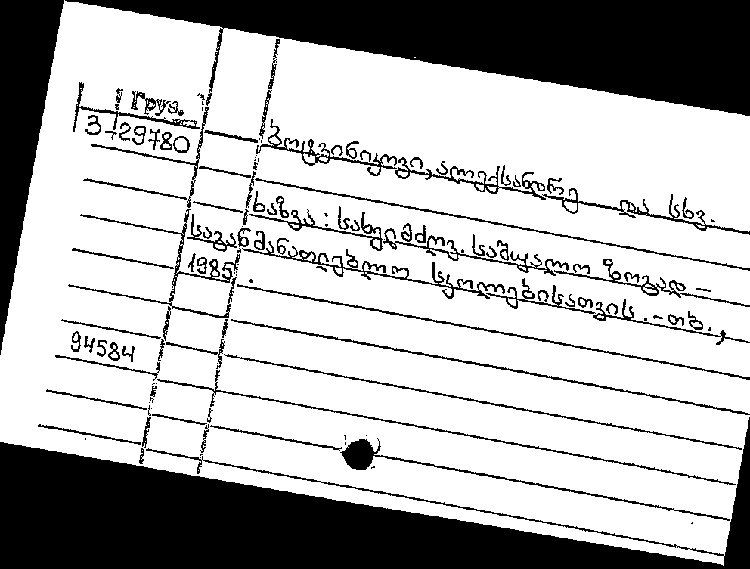 Груз.
3-29780
ბოტვინიკოვი, ალექსანდრე და სხვ.
ხაზვა : სახელმძღვ. საშუალო ზოგად-
საგანმანათლებლო სკოლებისათვის. - თბ.,
1985.
94584